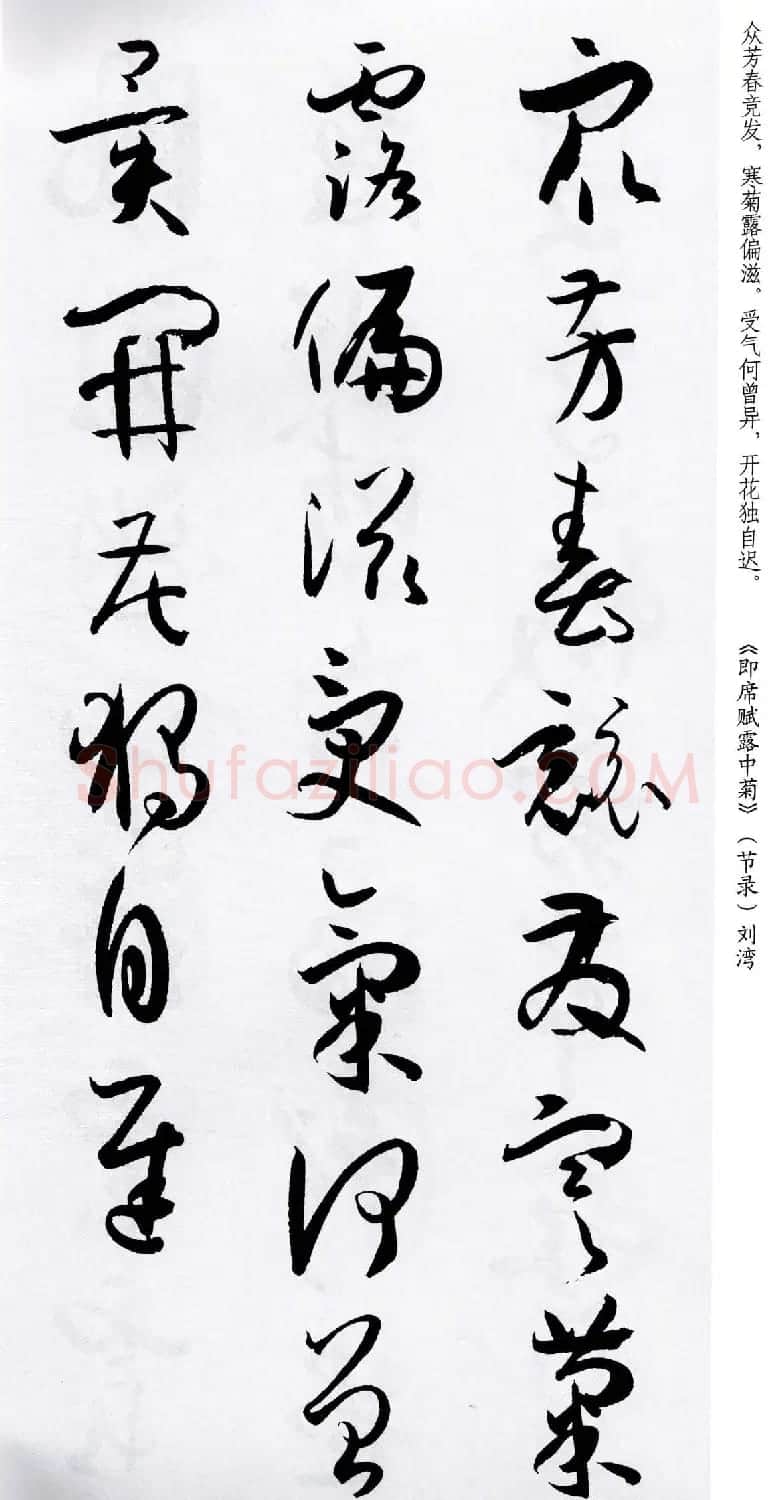 众芳春竞发，寒菊露偏滋。受气何曾异，开花独自迟。 《即席赋露中菊》（节录）刘湾
眾芳春競發寒菊
露偏滋受氣何曾
異開花獨自遲
Shufaziliao.COM